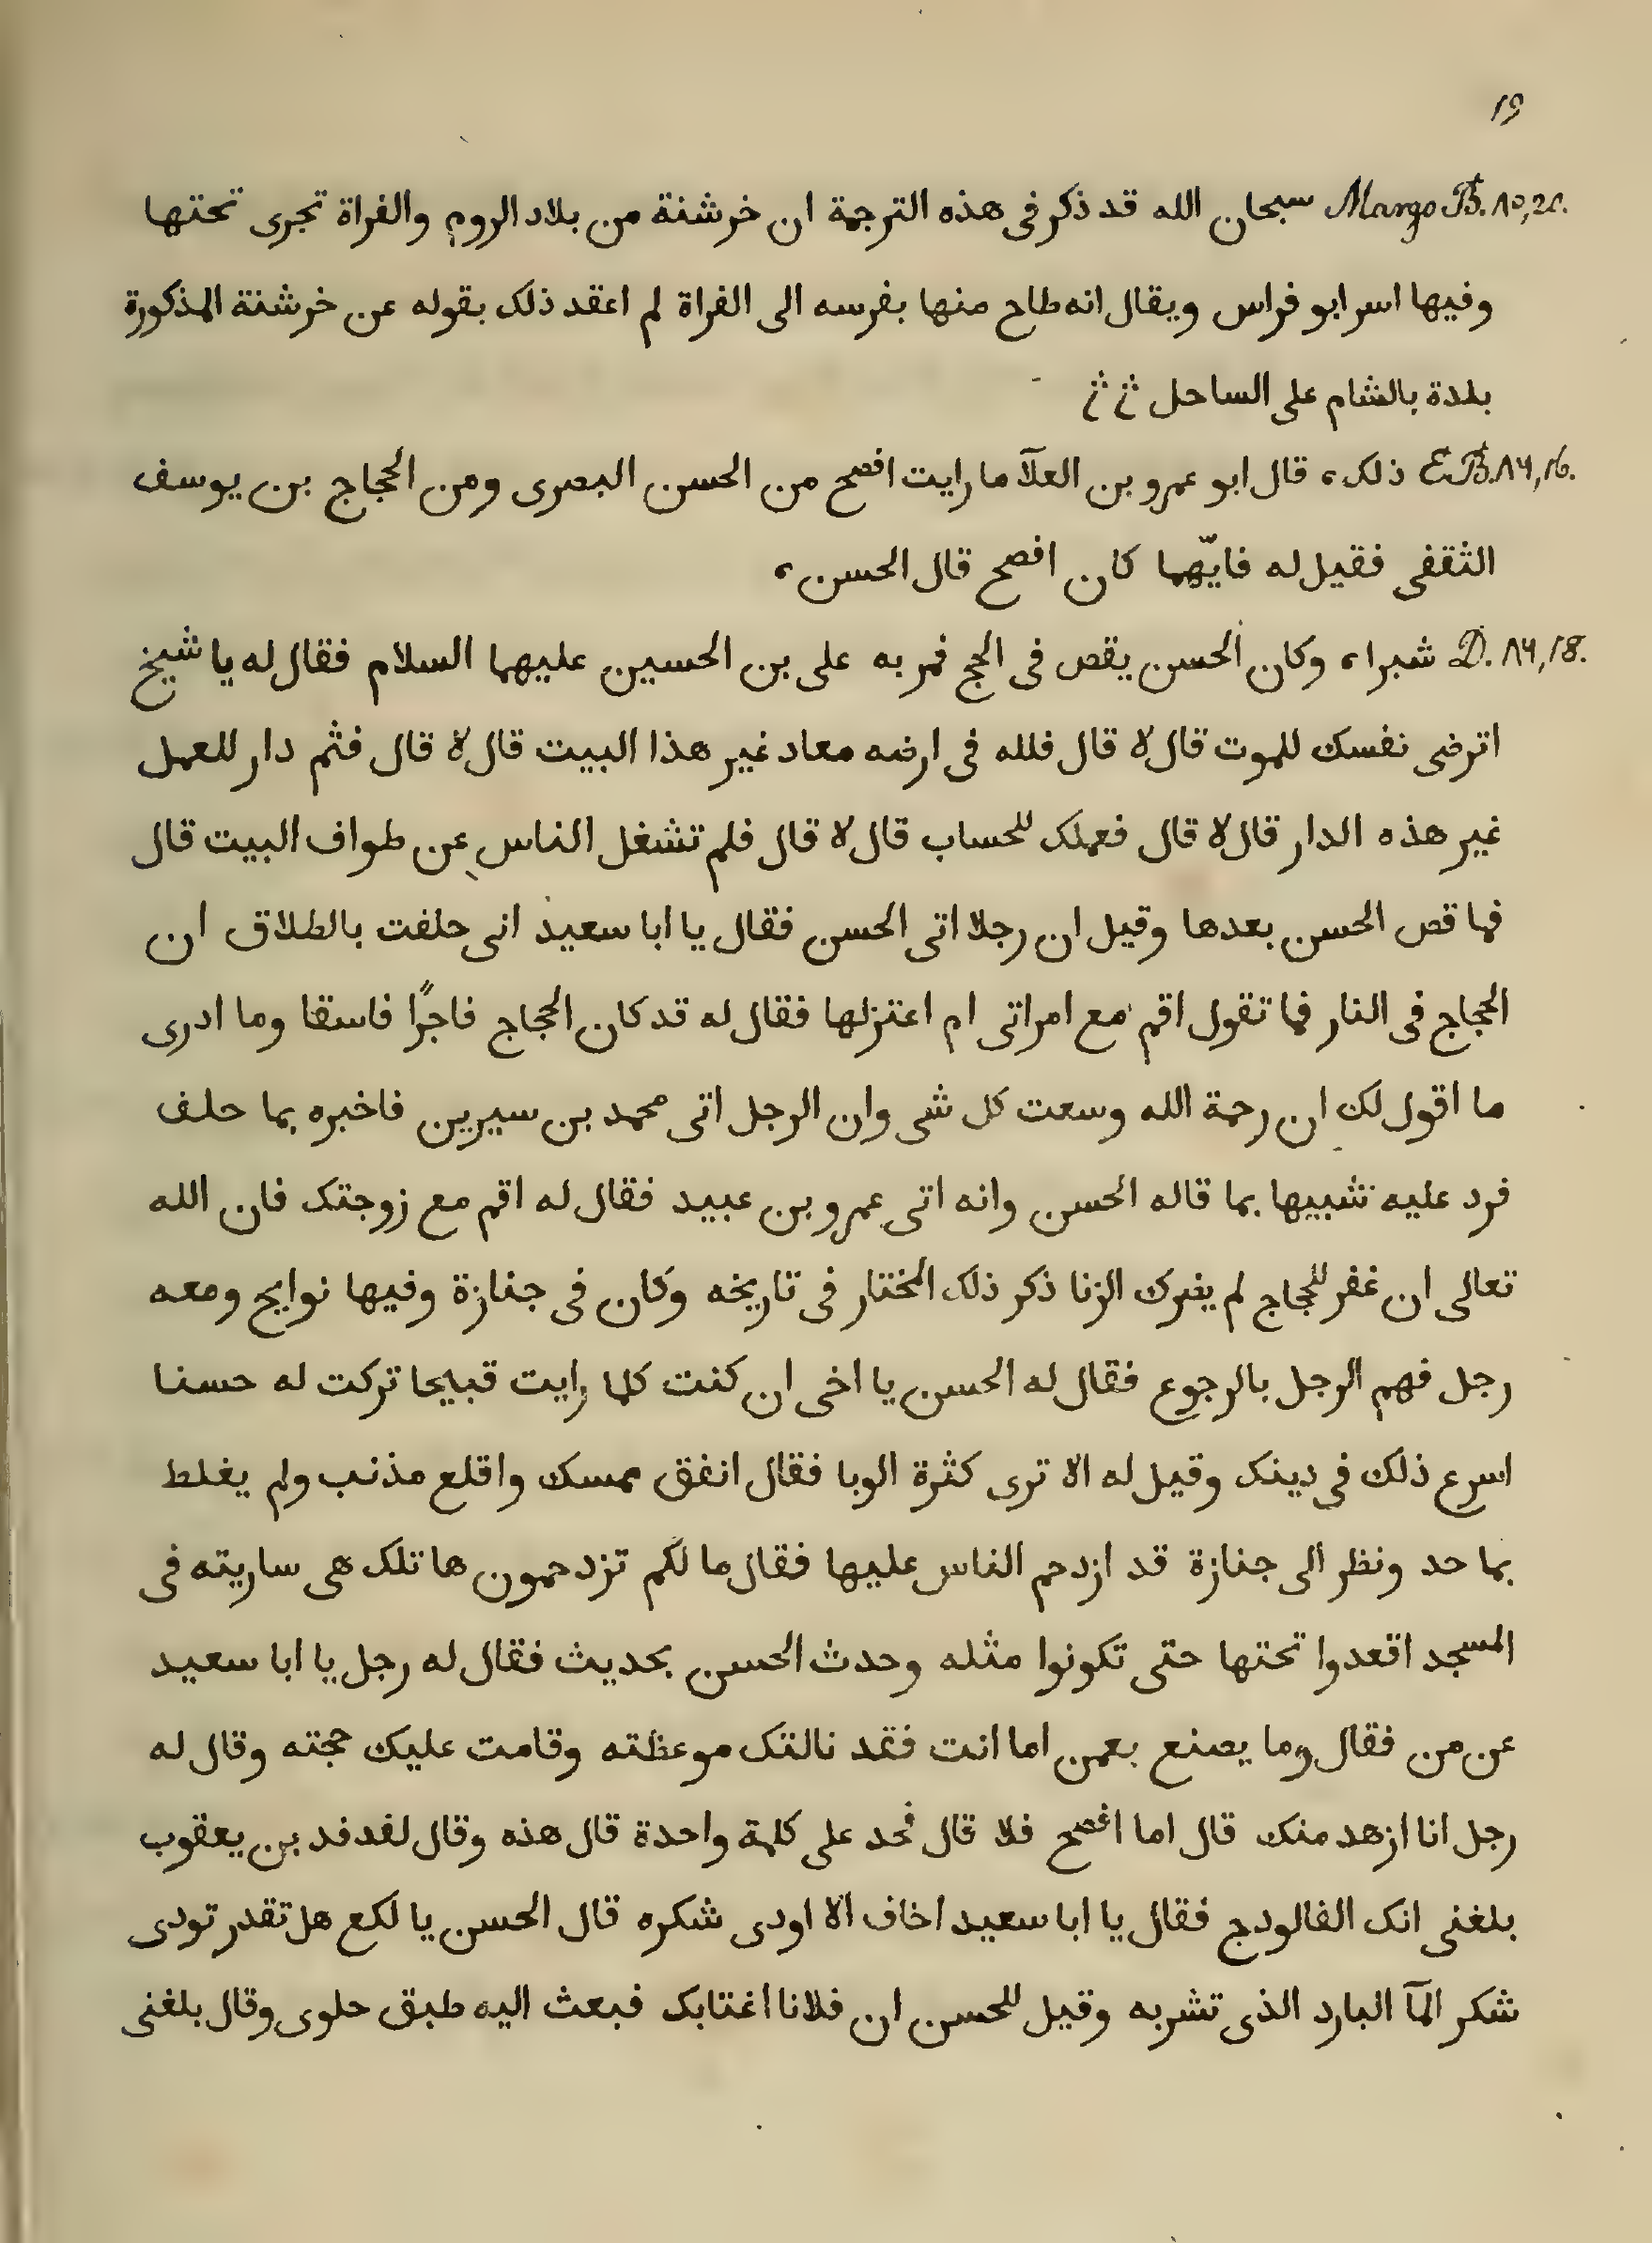 19
Margo B. ٨٥, 20. سبحان الله قد ذكر فى هذه الترجمة ان خرشنة من بلاد الروم والفراة تجرى تحتها
وفيها اسر ابو فراس ويقال انه طاح منها بفرسه الى الفراة لم اعقد ذلك بقوله عن خرشنة المذكورة
بلدة بالشام على الساحل
E.B. ٨٩, 16. ذلك، قال ابو عمرو بن العلآ ما رايت افصح من الحسن البصرى ومن الحجاج بن يوسف
الثقفى فقيل له فايّهما كان افصح قال الحسن،
D. ٨٩, 18. شبرا، وكان الحسن يقص فى الحج فمر به على بن الحسين عليهما السلام فقال له يا شيخ
اترضى نفسك للموت قال لا قال فلله فى ارضه معاد غير هذا البيت قال لا قال فثم دار للعمل
غير هذه الدار قال لا قال فعملك للحساب قال لا قال فلم تشغل الناس عن طواف البيت قال
فما قص الحسن بعدها وقيل ان رجلا اتى الحسن فقال يا ابا سعيد انى حلفت بالطلاق ان
الحجاج فى النار فما تقول اقم مع امراتى ام اعتزلها فقال له قد كان الحجاج فاجرًا فاسقا وما ادرى
ما اقول لك ان رحمة الله وسعت كل شى وان الرجل اتى محمد بن سيرين فاخبره بما حلف
فرد عليه شبيها بما قاله الحسن وانه اتى عمرو بن عبيد فقال له اقم مع زوجتك فان الله
تعالى ان غفر للحجاج لم يضرك الزنا ذكر ذلك المختار فى تاريخه وكان فى جنازة وفيها نوايح ومعه
رجل فهم الرجل بالرجوع فقال له الحسن يا اخى ان كنت كلما رايت قبيحا تركت له حسنا
اسرع ذلك فى دينك وقيل له الا ترى كثرة الوبا فقال انفق ممسك واقلع مذنب ولم يغلط
بما حد ونظر الى جنازة قد ازدحم الناس عليها فقال ما لكم تزدحمون ها تلك هى ساريته فى
المسجد اقعدوا تحتها حتى تكونوا مثله وحدث الحسن بحديث فقال له رجل يا ابا سعيد
عن من فقال وما يصنع بعمن اما انت فقد نالتك موعظته وقامت عليك حجته وقال له
رجل انا ازهد منك قال اما افصح فلا قال فحد على كلمة واحدة قال هذه وقال لفدفد بن يعقوب
بلغنى انك الفالودج فقال يا ابا سعيد اخاف الا اودى شكره قال الحسن يا لكع هل تقدر تودى
شكر المآ البارد الذى تشربه وقيل للحسن ان فلانا اغتابك فبعث اليه طبق حلوى وقال بلغنى